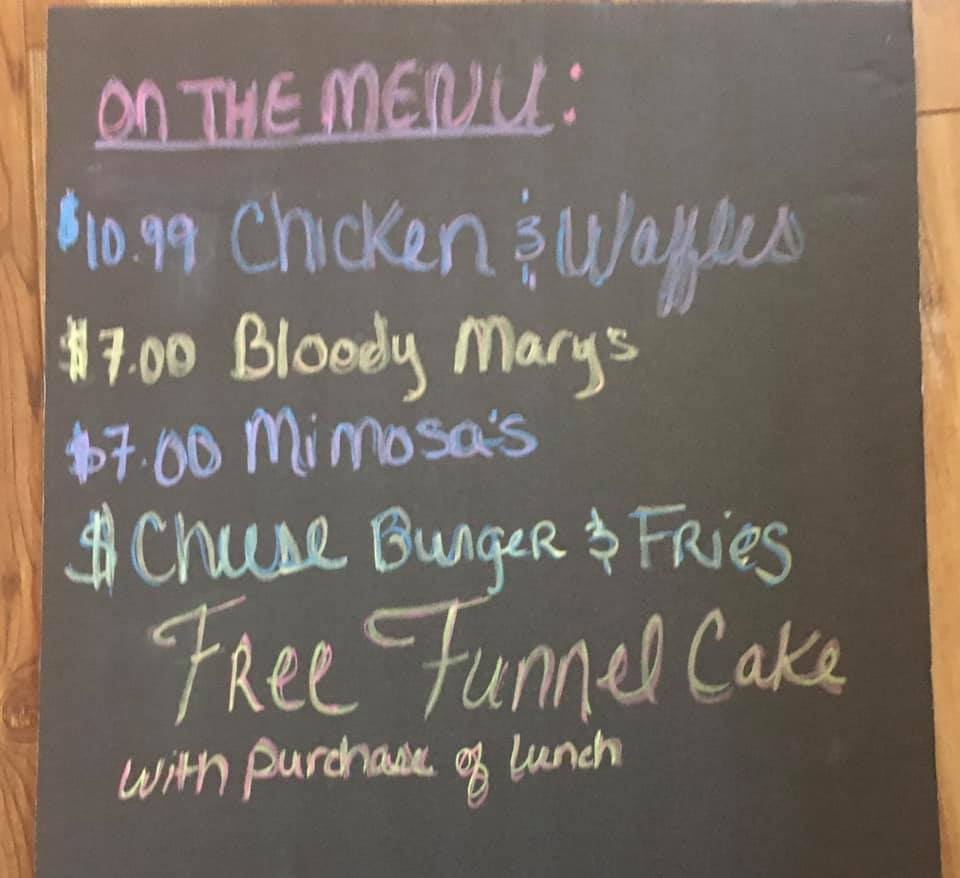 On THE MENU:
$10.99 Chicken & Waffles
$7.00 Bloody Marys
$7.00 Mimosa's
$ Cheese BurgeR & FRies
FRee Funnel Cake
with purchase of lunch